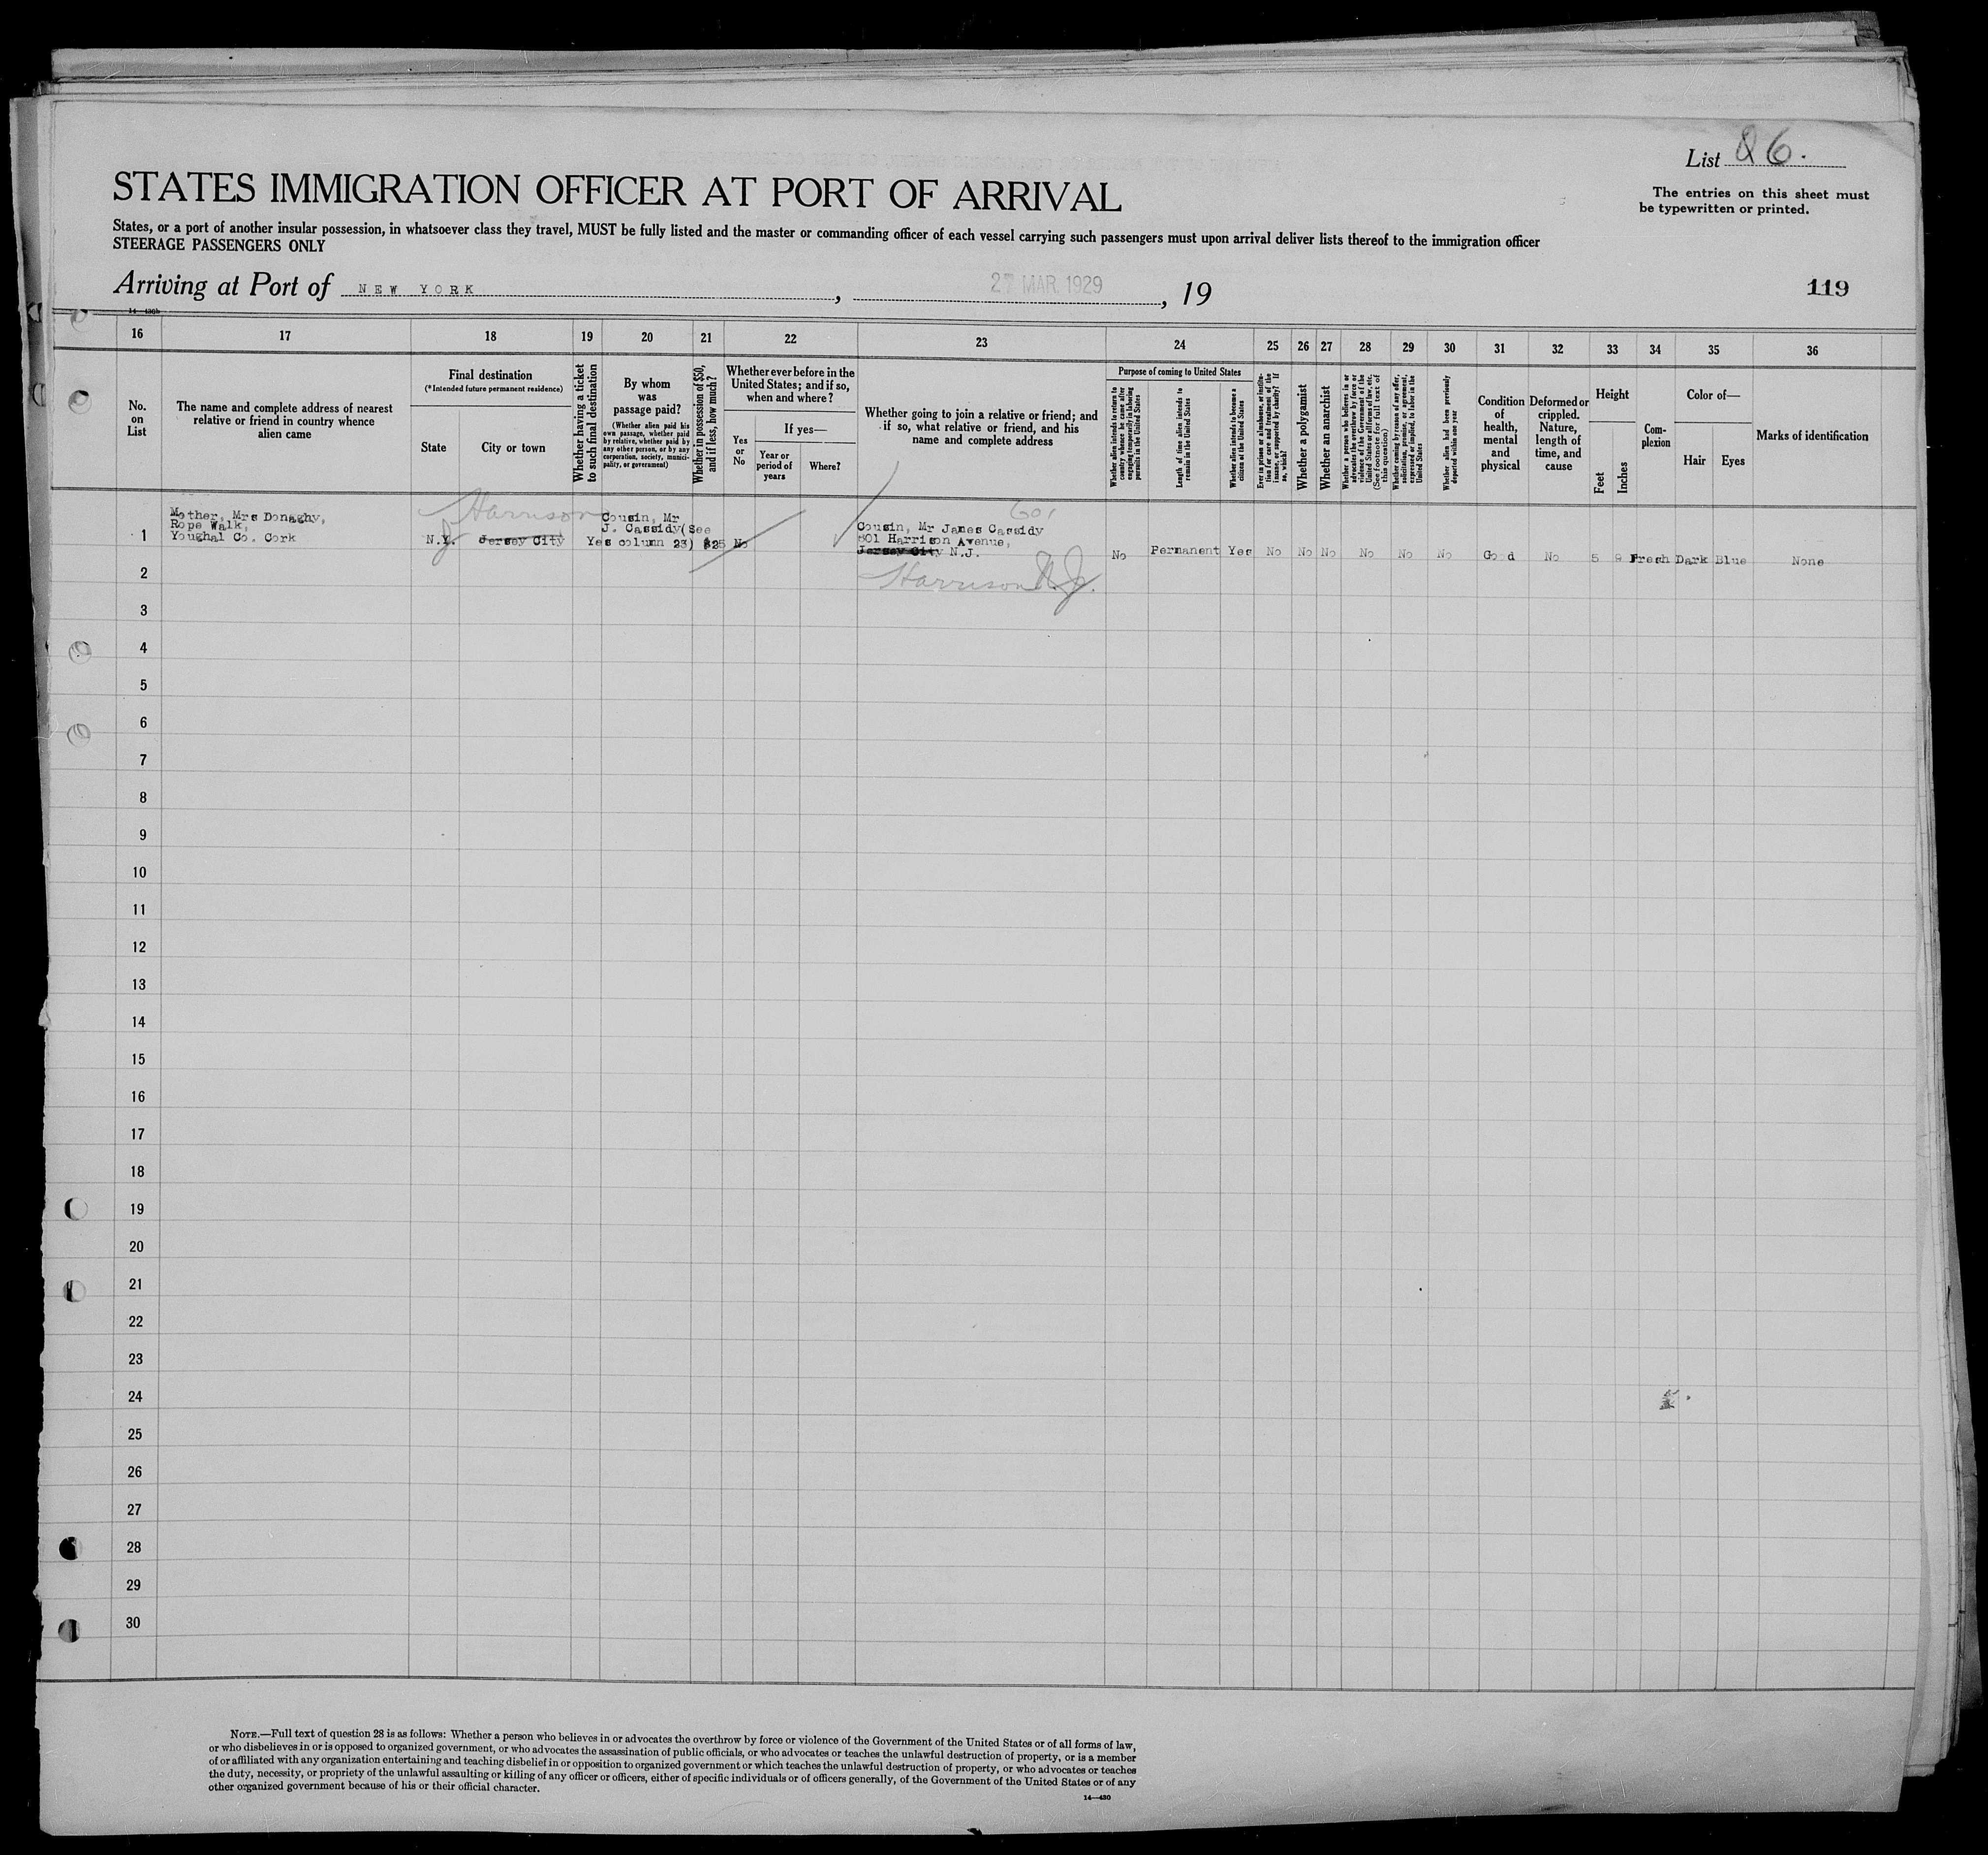 List 86.
The entries on this sheet must
be typewritten or printed.
STATES IMMIGRATION OFFICER AT PORT OF ARRIVAL
States, or a port of another insular possession, in whatsoever class they travel, MUST be fully listed and the master or commanding officer of each vessel carrying such passengers must upon arrival deliver lists thereof to the immigration officer
STEERAGE PASSENGERS ONLY
Arriving at Port of NEW YORK, 27 MAR 1929, 19
119
14—430b
16 17 18 19 20 21 22 23 24 25 26 27 28 29 30 31 32 33 34 35 36
No.
on
List
The name and complete address of nearest
relative or friend in country whence
alien came
Final destination
(*Intended future permanent residence)
State
City or town
Whether having a ticket
to such final destination
By whom
was
passage paid?
(Whether alien paid his
own passage, whether paid
by relative, whether paid by
any other person, or by any
corporation, society, munici-
pality, or government)
Whether in possession of $50,
and if less, how much?
Whether ever before in the
United States; and if so,
when and where?
Yes
or
No
If yes—
Year or
period of
years
Where?
Whether going to join a relative or friend; and
if so, what relative or friend, and his
name and complete address
Purpose of coming to United States
Whether alien intends to return to
country whence he came after
engaging temporarily in laboring
pursuits in the United States
Length of time alien intends to
remain in the United States
Whether alien intends to become a
citizen of the United States
Ever in prison or almshouse, or institu-
tion for care and treatment of the
insane, or supported by charity? If
so, which?
Whether a polygamist
Whether an anarchist
Whether a person who believes in or
advocates the overthrow by force or
violence of the Government of the
United States or all forms of law, etc.
(See footnote for full text of
this question)
Whether coming by reason of any offer,
solicitation, promise, or agreement,
expressed or implied, to labor in the
United States
Whether alien had been previously
deported within one year
Condition
of
health,
mental
and
physical
Deformed or
crippled.
Nature,
length of
time, and
cause
Height
Feet
Inches
Com-
plexion
Color of—
Hair
Eyes
Marks of identification
Harrison
601
1
Mother, Mrs Donaghy,
Rope Walk,
Youghal Co. Cork
N.Y. Jersey City
J
Yes
Cousin, Mr
J. Cassidy(See
column 23)
$25
No
Cousin, Mr James Cassidy
801 Harrison Avenue,
Jersey City N.J.
Harrison N.J.
No Permanent Yes No No No No No No Good No 5 9 Fresh Dark Blue None
2
3
4
5
6
7
8
9
10
11
12
13
14
15
16
17
18
19
20
21
22
23
24
25
26
27
28
29
30
NOTE.—Full text of question 28 is as follows: Whether a person who believes in or advocates the overthrow by force or violence of the Government of the United States or of all forms of law,
or who disbelieves in or is opposed to organized government, or who advocates the assassination of public officials, or who advocates or teaches the unlawful destruction of property, or is a member
of or affiliated with any organization entertaining and teaching disbelief in or opposition to organized government or which teaches the unlawful destruction of property, or who advocates or teaches
the duty, necessity, or propriety of the unlawful assaulting or killing of any officer or officers, either of specific individuals or of officers generally, of the Government of the United States or of any
other organized government because of his or their official character.
14—430